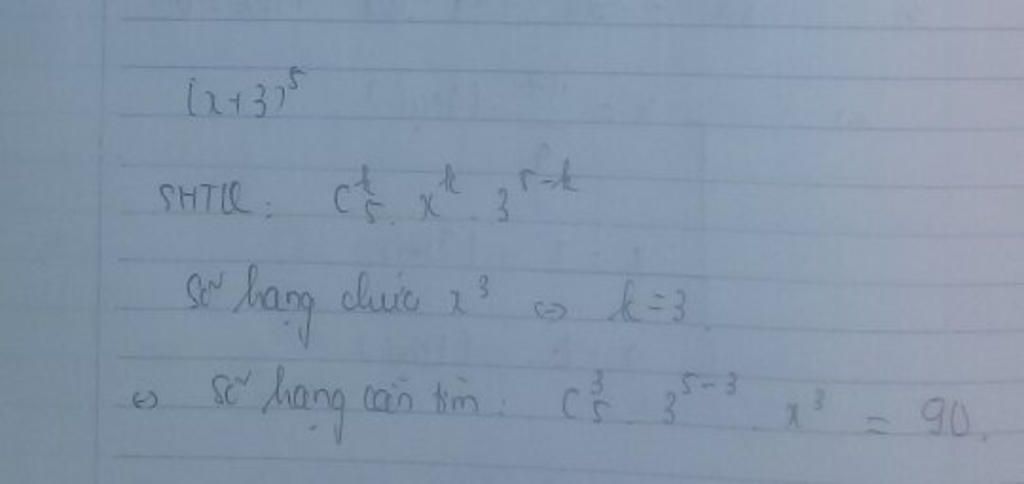 (x+3)⁵
SHTQ: C₅ᵏ . xᵏ . 3⁵⁻ᵏ
Số hạng chứa x³ ⇔ k=3
⇔ số hạng cần tìm: C₅³ . 3⁵⁻³ . x³ = 90.